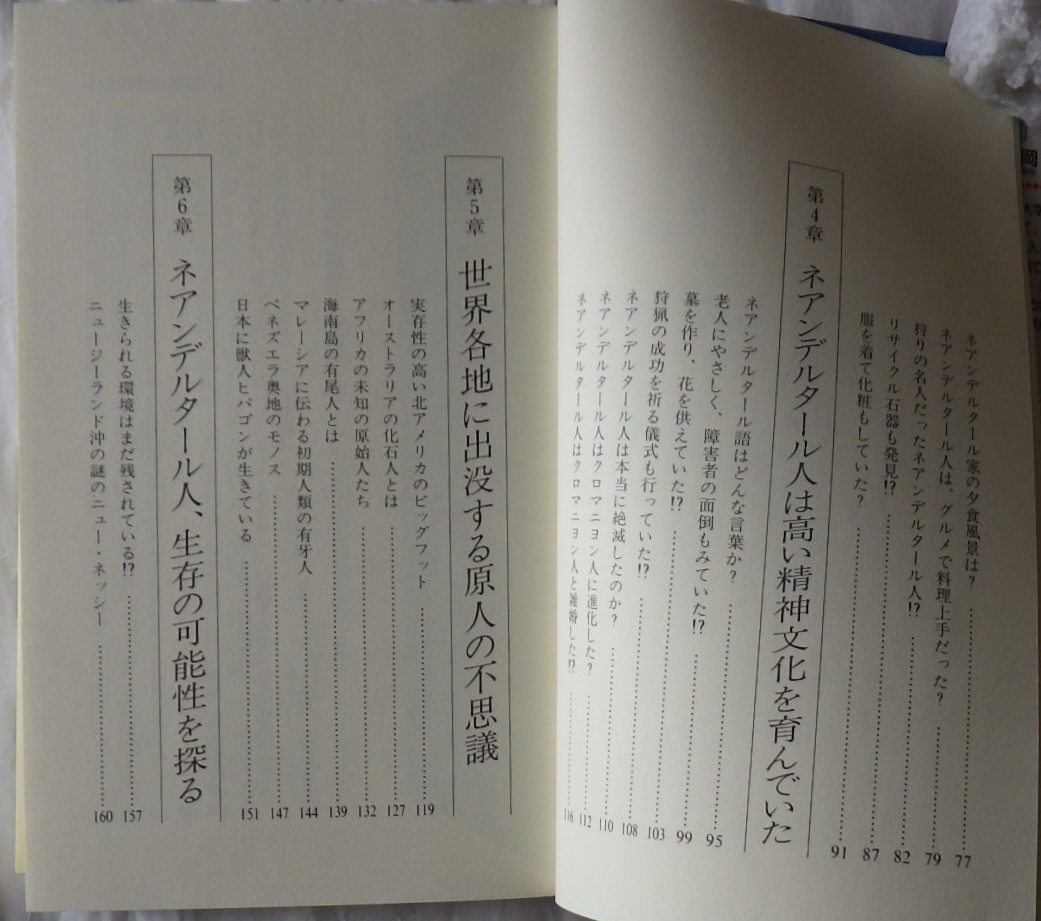 ネアンデルタール家の夕食風景は？……77
ネアンデルタール人は、グルメで料理上手だった？……79
狩りの名人だったネアンデルタール人!?……82
リサイクル石器も発見!?……87
服を着て化粧もしていた？……91
第4章 ネアンデルタール人は高い精神文化を育んでいた
ネアンデルタール語はどんな言葉か？……95
老人にやさしく、障害者の面倒もみていた!?……99
墓を作り、花を供えていた!?……103
狩猟の成功を祈る儀式も行っていた!?……108
ネアンデルタール人は本当に絶滅したのか？……110
ネアンデルタール人はクロマニヨン人に進化した？……112
ネアンデルタール人はクロマニヨン人と雑婚した!?……116
第5章 世界各地に出没する原人の不思議
実存性の高い北アメリカのビッグフット……119
オーストラリアの化石人とは……127
アフリカの未知の原始人たち……132
海南島の有尾人とは……139
マレーシアに伝わる初期人類の有牙人……144
ベネズエラ奥地のモノス……147
日本に獣人ヒバゴンが生きている……151
第6章 ネアンデルタール人、生存の可能性を探る
生きられる環境はまだ残されている!?……157
ニュージーランド沖の謎のニュー・ネッシー……160
岡